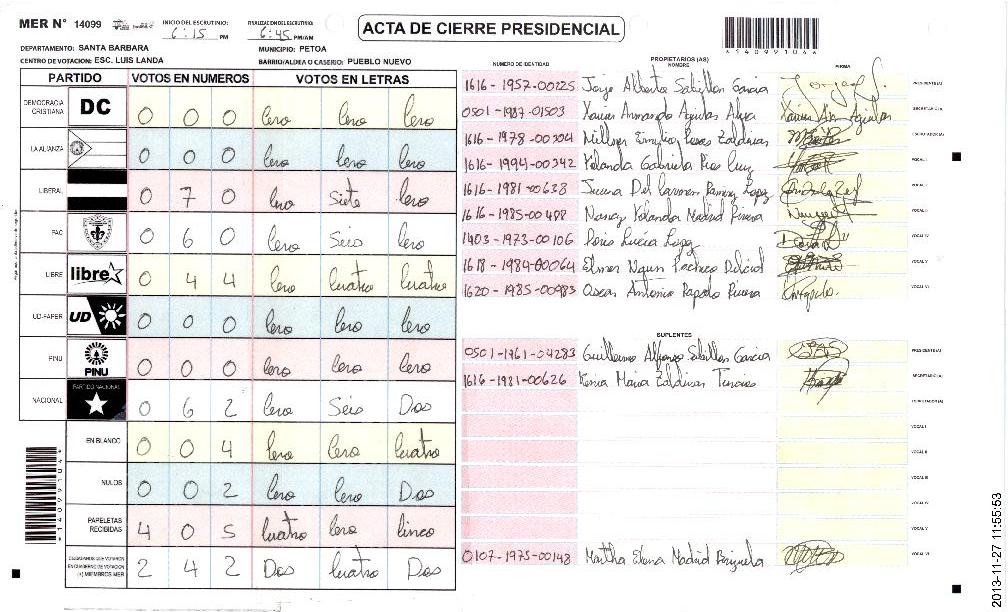 MER N° 14099
INICIO DEL ESCRUTINIO: 6:15 PM
FINALIZACION DEL ESCRUTINIO: 6:45 PM/AM
ACTA DE CIERRE PRESIDENCIAL
DEPARTAMENTO: SANTA BARBARA
MUNICIPIO: PETOA
CENTRO DE VOTACION: ESC. LUIS LANDA
BARRIO/ALDEA O CASERIO: PUEBLO NUEVO
PARTIDO VOTOS EN NUMEROS VOTOS EN LETRAS
DEMOCRACIA CRISTIANA DC 0 0 0 Cero Cero Cero
LA ALIANZA 0 0 0 Cero Cero Cero
LIBERAL 0 7 0 Cero Siete Cero
PAC 0 6 0 Cero Séis Cero
LIBRE libre 0 4 4 Cero Cuatro Cuatro
UD-FAPER UD 0 0 0 Cero Cero Cero
PINU PINU 0 0 0 Cero Cero Cero
NACIONAL PARTIDO NACIONAL 0 6 2 Cero Séis Dos
EN BLANCO 0 0 4 Cero Cero Cuatro
NULOS 0 0 2 Cero Cero Dos
PAPELETAS RECIBIDAS 4 0 5 Cuatro Cero Cinco
CIUDADANOS QUE VOTARON EN CUADERNO DE VOTACION (+) MIEMBROS MER 2 4 2 Dos Cuatro Dos
NUMERO DE IDENTIDAD
PROPIETARIOS (AS)
NOMBRE
FIRMA
1616-1957-00225 Jorge Alberto Sabillon Garcia PRESIDENTE(A)
0501-1987-01503 Xavier Armando Aguilar SECRETARIO(A)
1616-1978-00304 ESCRUTADOR(A)
1616-1994-00342 Yolanda Gabriela VOCAL I
1616-1981-00638 Del Carmen Lopez
1616-1985-00488 Nancy Yolanda Madrid Rivera
1403-1973-00106 Lucia Lopez VOCAL IV
1618-1984-00064 Elmer Pacheco VOCAL V
1620-1985-00983 Oscar Antonio Rivera VOCAL VI
SUPLENTES
0501-1961-04283 Guillermo Alfonso Sabillon Garcia PRESIDENTE(A)
1616-1981-00626 Maria Zaldivar SECRETARIO(A)
ESCRUTADOR(A)
VOCAL I
VOCAL II
VOCAL III
VOCAL IV
VOCAL V
0107-1975-00148 Martha Elena Madrid VOCAL VI
1409910 4
2013-11-27 11:55:53